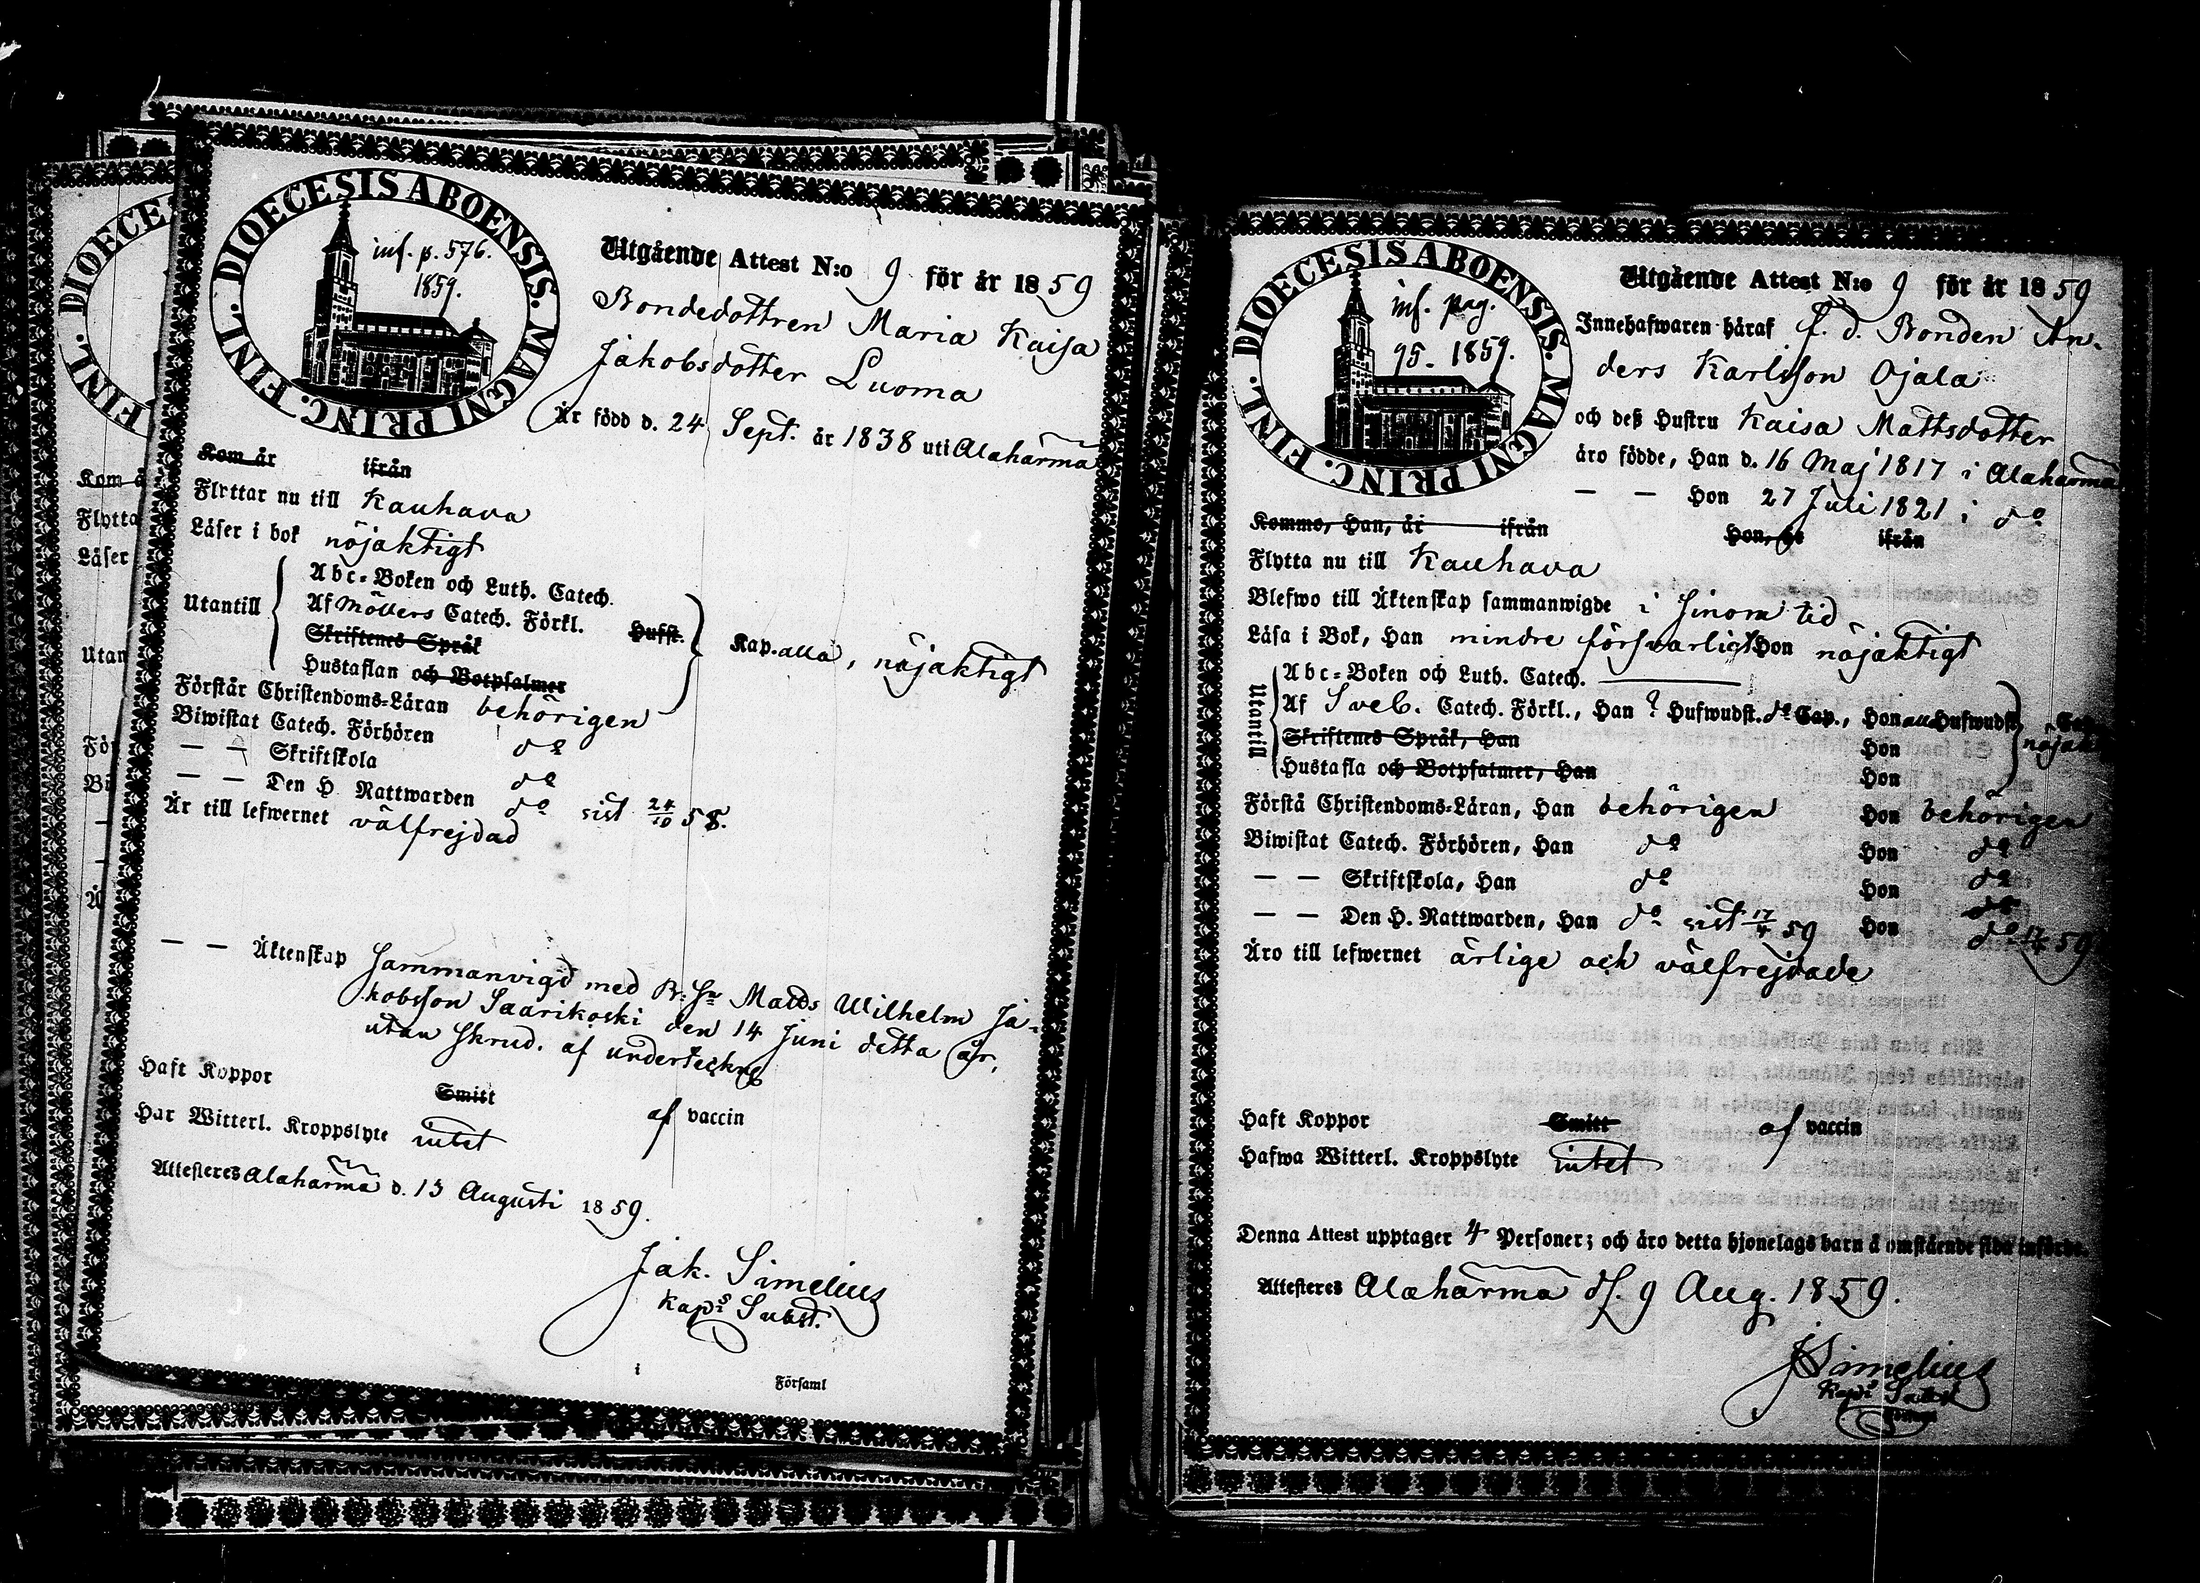 DIOECE
FINL.
Kom å
Flytta
Läser
Utan
För
Bi
DIOECESIS ABOENSIS. MAGNI PRINC. FINL.
inf. p. 576.
1859.
Utgående Attest N:o 9 för år 1859
Bondedottren Maria Kaisa
Jakobsdotter Luoma
Är född d. 24 Sept. år 1838 uti Alahärmä
Kom år ifrån
Flyttar nu till Kauhava
Läser i bok nöjaktigt
Utantill
Abc-Boken och Luth. Catech.
Af Möllers Catech. Förkl. Hufst.
Skriftenes Språk
Hustaflan och Botpsalmer
Kap. alla, nöjaktigt
Förstår Christendoms-Läran behörigen
Biwistat Catech. Förhören do
— — Skriftskola do
— — Den H. Nattwarden do sist 24/10 58.
Är till lefwernet välfrejdad
— — Äktenskap Sammanvigd med B. Sn Matts Wilhelm Ja-
kobsson Saarikoski den 14 Juni detta år,
utan skrud. af undertecknad
Haft Koppor Smitt af vaccin
Har Witterl. Kroppslyte intet
Attesteres Alahärmä d. 13 Augusti 1859.
Jak. Simelius
Kap:s Subst.
i Församl
DIOECESIS ABOENSIS. MAGNI PRINC. FINL.
inf. pag.
95. 1859.
Utgående Attest N:o 9 för år 1859
Innehafwaren häraf f. d. Bonden An-
ders Karlsson Ojala
och deß Hustru Kaisa Mattsdotter
äro födde, Han d. 16 Maj 1817 i Alahärmä
— — Hon 27 Juli 1821 i do
Kommo, Han, år ifrån Hon, år ifrån
Flytta nu till Kauhava
Blefwo till Äktenskap sammanwigde i sinom tid
Läsa i Bok, Han mindre försvarligt Hon nöjaktigt
Utantill
Abc-Boken och Luth. Catech.
Af Sveb. Catech. Förkl., Han ? Hufwudst. do Cap., Hon alla Hufwudst.
Skriftenes Språk, Han Hon
Hustafla och Botpsalmer, Han Hon
Förstå Christendoms-Läran, Han behörigen Hon behörigen
Biwistat Catech. Förhören, Han do Hon do
— — Skriftskola, Han do Hon do
— — Den H. Nattwarden, Han do sist 17/4 59 Hon do 17/4 59
Äro till lefwernet ärlige och välfrejdade
Haft Koppor Smitt af vaccin
Hafwa Witterl. Kroppslyte intet
Denna Attest upptager 4 Personer; och äro detta hjonelags barn å omstående sida införde.
Attesteres Alahärmä d. 9 Aug. 1859.
J Simelius
Kap:s Subst